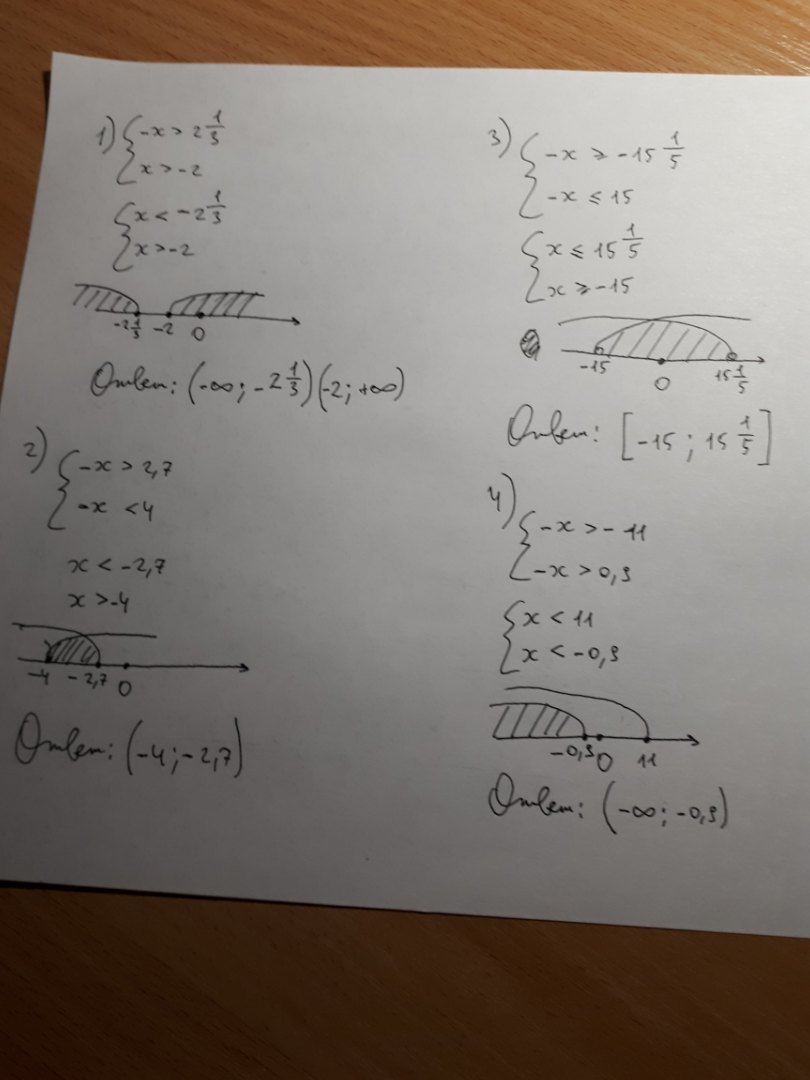 1) { -x > 2 1/3
x > -2
{ x < -2 1/3
x > -2
-2 1/3 -2 0
Ответ: (-∞; -2 1/3)(-2; +∞)
2) { -x > 2,7
-x < 4
x < -2,7
x > -4
-4 -2,7 0
Ответ: (-4; -2,7)
3) { -x ⩾ -15 1/5
-x ⩽ 15
{ x ⩽ 15 1/5
x ⩾ -15
-15 0 15 1/5
Ответ: [-15; 15 1/5]
4) { -x > -11
-x > 0,9
{ x < 11
x < -0,9
-0,9 0 11
Ответ: (-∞; -0,9)